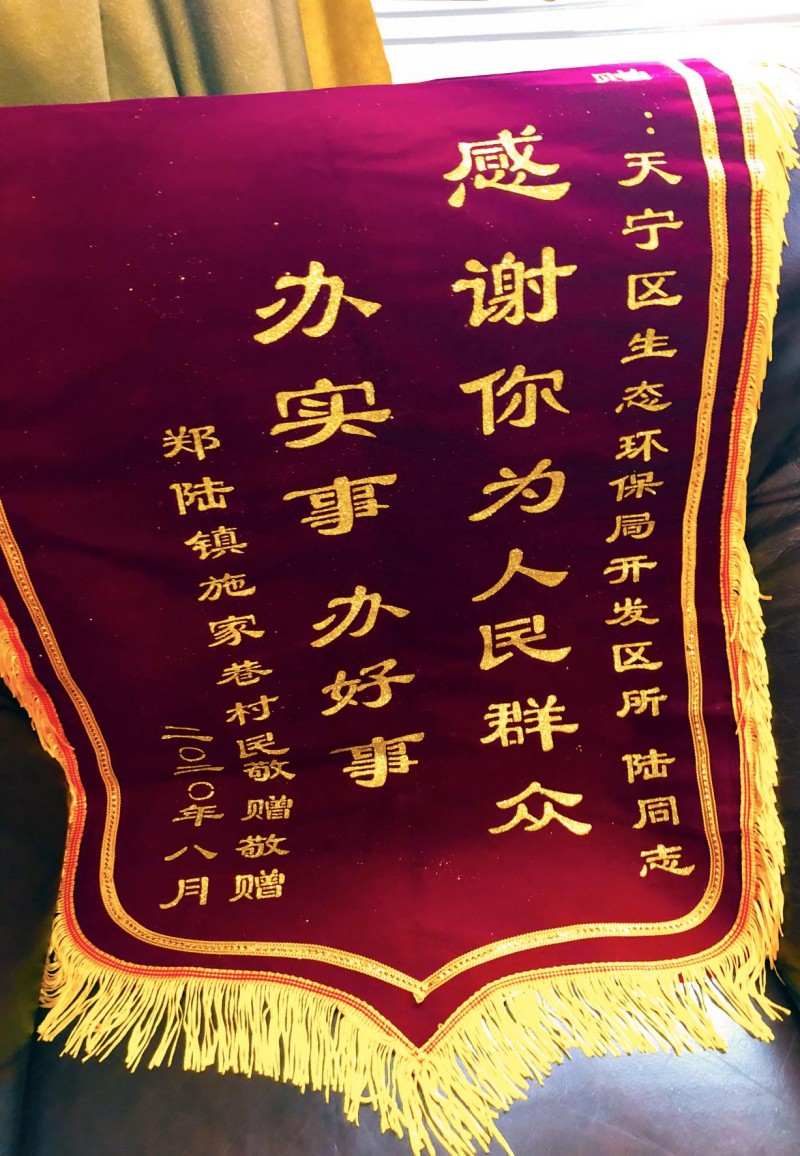 ：天宁区生态环保局开发区所 陆同志
感谢你为人民群众
办实事 办好事
郑陆镇施家巷村民敬赠敬赠
二〇二〇年八月